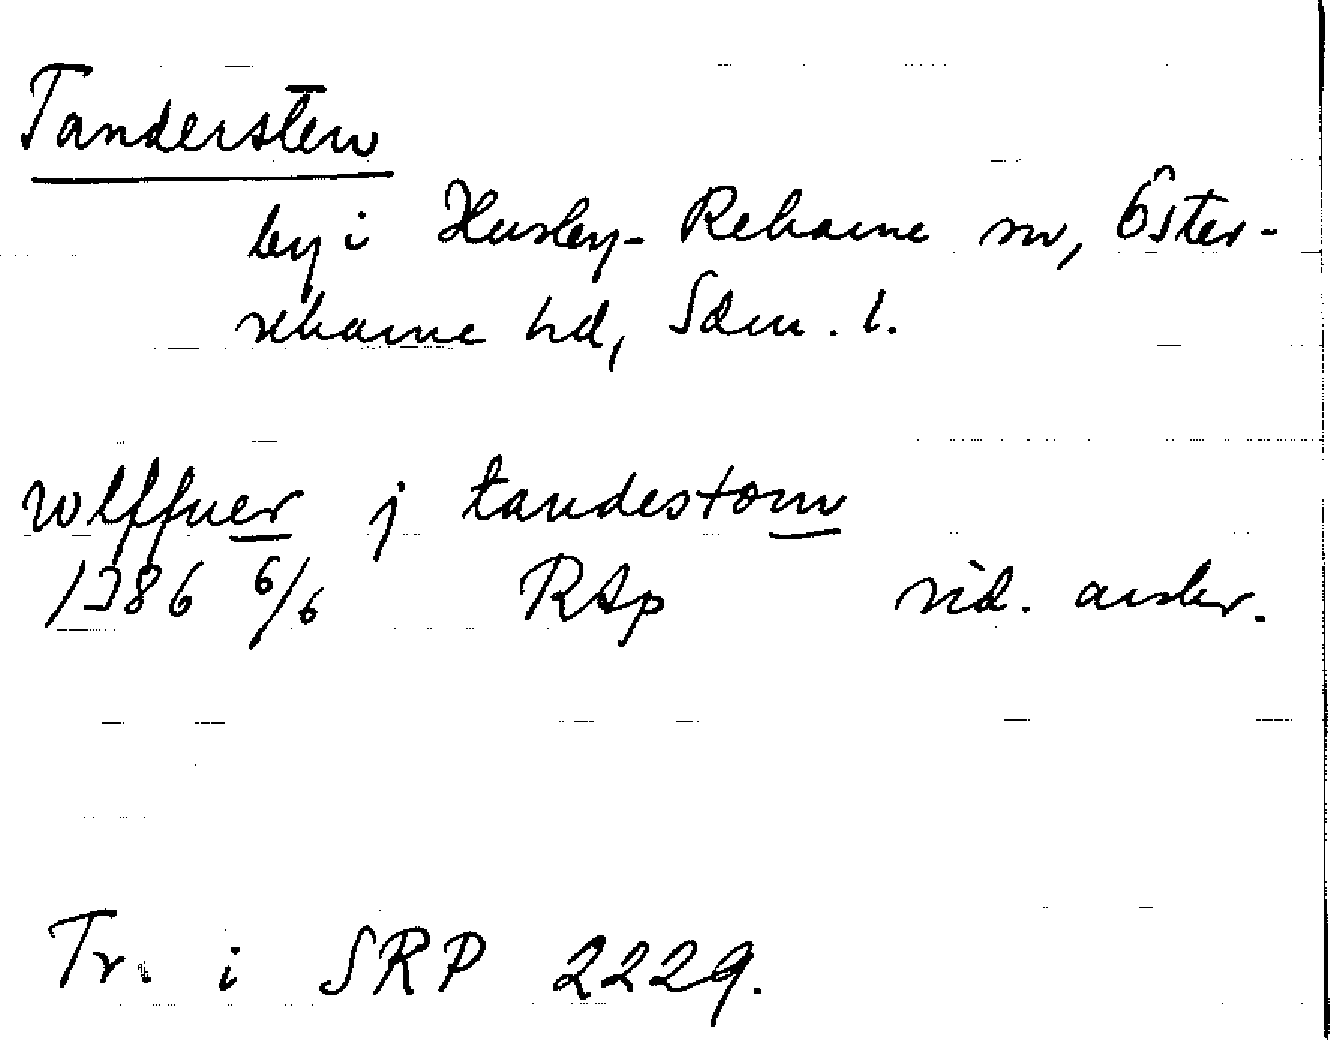 Tandersten
by i Husby-Rekarne sn, Öster-
rekarne hd, Sdm. l.
wlffuer j tandestom
1386 6/6 RAp vid. avskr.
Tr. i SRP 2229.